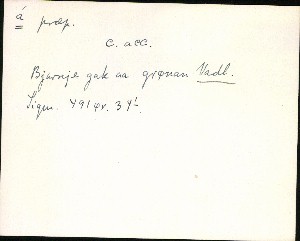 á præp.
c. acc.
Bjarnje gak aa grønan Vadl.
Sigm. 491 φr. 39²